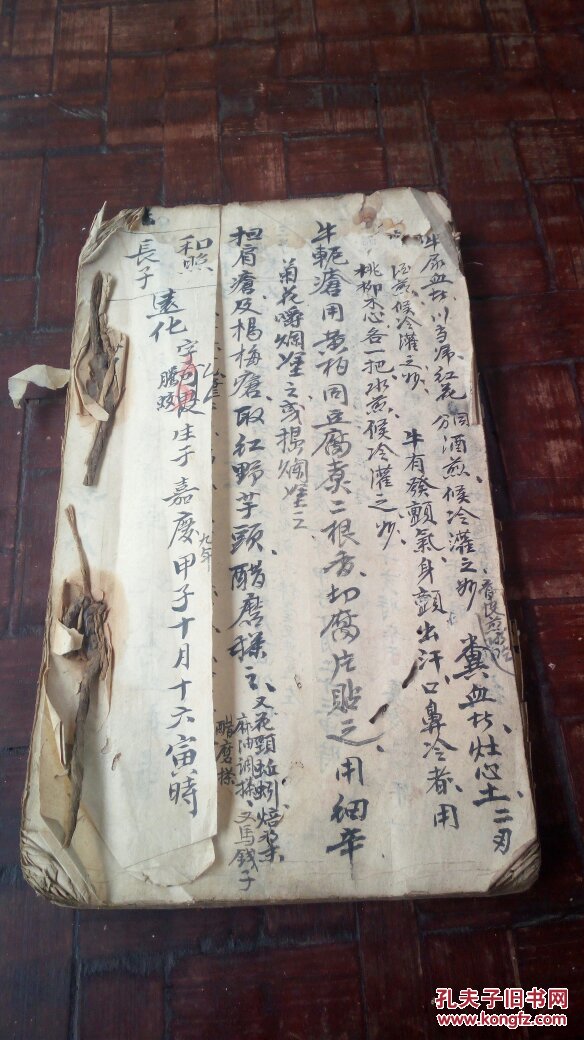 牛尿血者、川当归红花 同酒煎候冷灌之妙、糞血者灶心土二刃
酒煎候冷灌之妙、牛有發顫氣身顫出汗、口鼻冷者、用
桃柳木心各一把水煎候冷灌之妙、
牛軛瘡用黄柏同豆腐煑二根香、切腐片貼之、用細辛
菊花嚼爛塗之或根爛塗之
担肩瘡及楊梅瘡、取紅野芋頭、醋磨搽之、又花頸蚯蚓焙
麻油調搽、又馬錢子
醋磨搽
和照
長子 遠化 字 生于嘉慶九年甲子十月十六寅時
孔夫子旧书网
www.kongfz.com